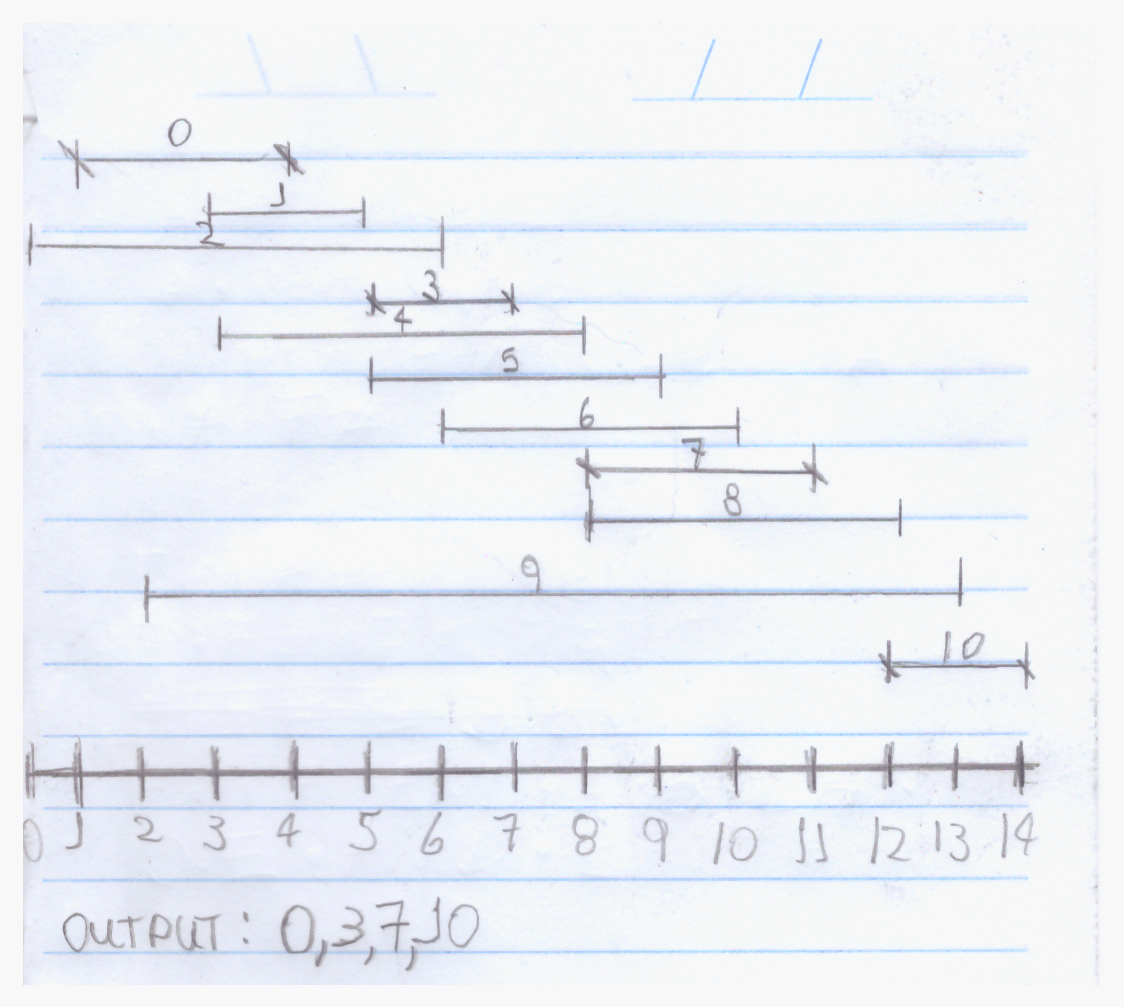 0
1
2
3
4
5
6
7
8
9
10
0 1 2 3 4 5 6 7 8 9 10 11 12 13 14
OUTPUT: 0,3,7,10